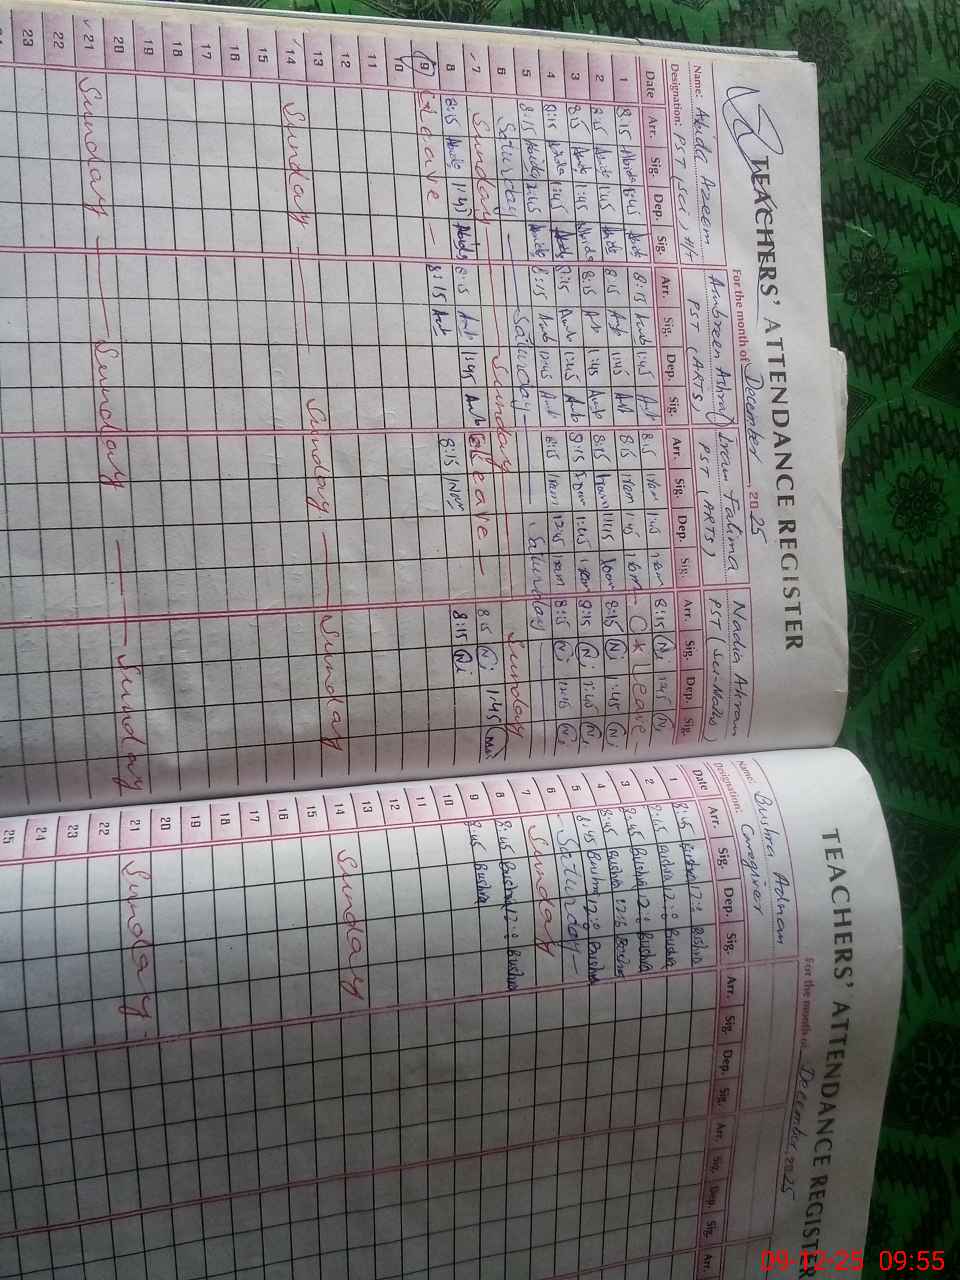 TEACHERS' ATTENDANCE REGISTER
For the month of December, 2025
Name: Abida Azeem Ambreen Ashraf Iram Fatima Nadia Akram
Designation: PST (Sci) H/T PST (ARTS) PST (ARTS) PST (Sci-Maths)
Date Arr. Sig. Dep. Sig. Arr. Sig. Dep. Sig. Arr. Sig. Dep. Sig. Arr. Sig. Dep. Sig.
1 8:15 Abida 1:45 Abida 8:15 Amb 1:45 Amb 8:15 Iram 1:45 Iram 8:15 1:45
2 8:15 Abida 1:45 Abida 8:15 Amb 1:45 Amb 8:15 Iram 1:45 Iram Leave
3 8:15 Abida 1:45 Abida 8:15 Amb 1:45 Amb 8:15 Iram 1:45 Iram 8:15 1:45
4 8:15 Abida 1:45 Abida 8:15 Amb 1:45 Amb 8:15 Iram 1:45 Iram 8:15 1:45
5 8:15 Abida 12:45 Abida 8:15 Amb 12:45 Amb 8:15 Iram 12:45 Iram 8:15 12:45
6 Saturday Saturday Saturday
7 Sunday Sunday Sunday
8 8:15 Abida 1:45 Abida 8:15 Amb 1:45 Amb Leave 8:15 1:45
9 Leave 8:15 Amb 8:15 Iram 8:15
10
11
12
13
14 Sunday Sunday Sunday
15
16
17
18
19
20
21 Sunday Sunday Sunday
22
23
TEACHERS' ATTENDANCE REGISTER
For the month of December, 2025
Name: Bushra Adnan
Designation: Caregiver
Date Arr. Sig. Dep. Sig. Arr. Sig. Dep. Sig. Arr. Sig. Dep. Sig. Arr.
1 8:45 Bushra 12:0 Bushra
2 8:15 Bushra 12:0 Bushra
3 8:45 Bushra 12:0 Bushra
4 8:45 Bushra Bushra
5 8:45 Bushra 12:0 Bushra
6 Saturday
7 Sunday
8 8:45 Bushra 12:0 Bushra
9 8:45 Bushra
10
11
12
13
14 Sunday
15
16
17
18
19
20
21 Sunday
22
23
24
25
09-12-25 09:55